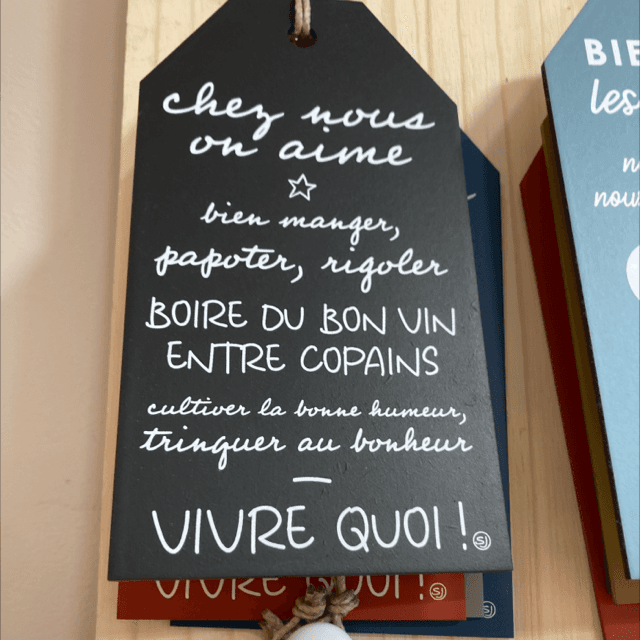 chez nous
on aime
bien manger,
papoter, rigoler
BOIRE DU BON VIN
ENTRE COPAINS
cultiver la bonne humeur,
trinquer au bonheur
VIVRE QUOI !
SJ
VIVRE QUOI !
SJ
SJ
BIE
les
n
nou